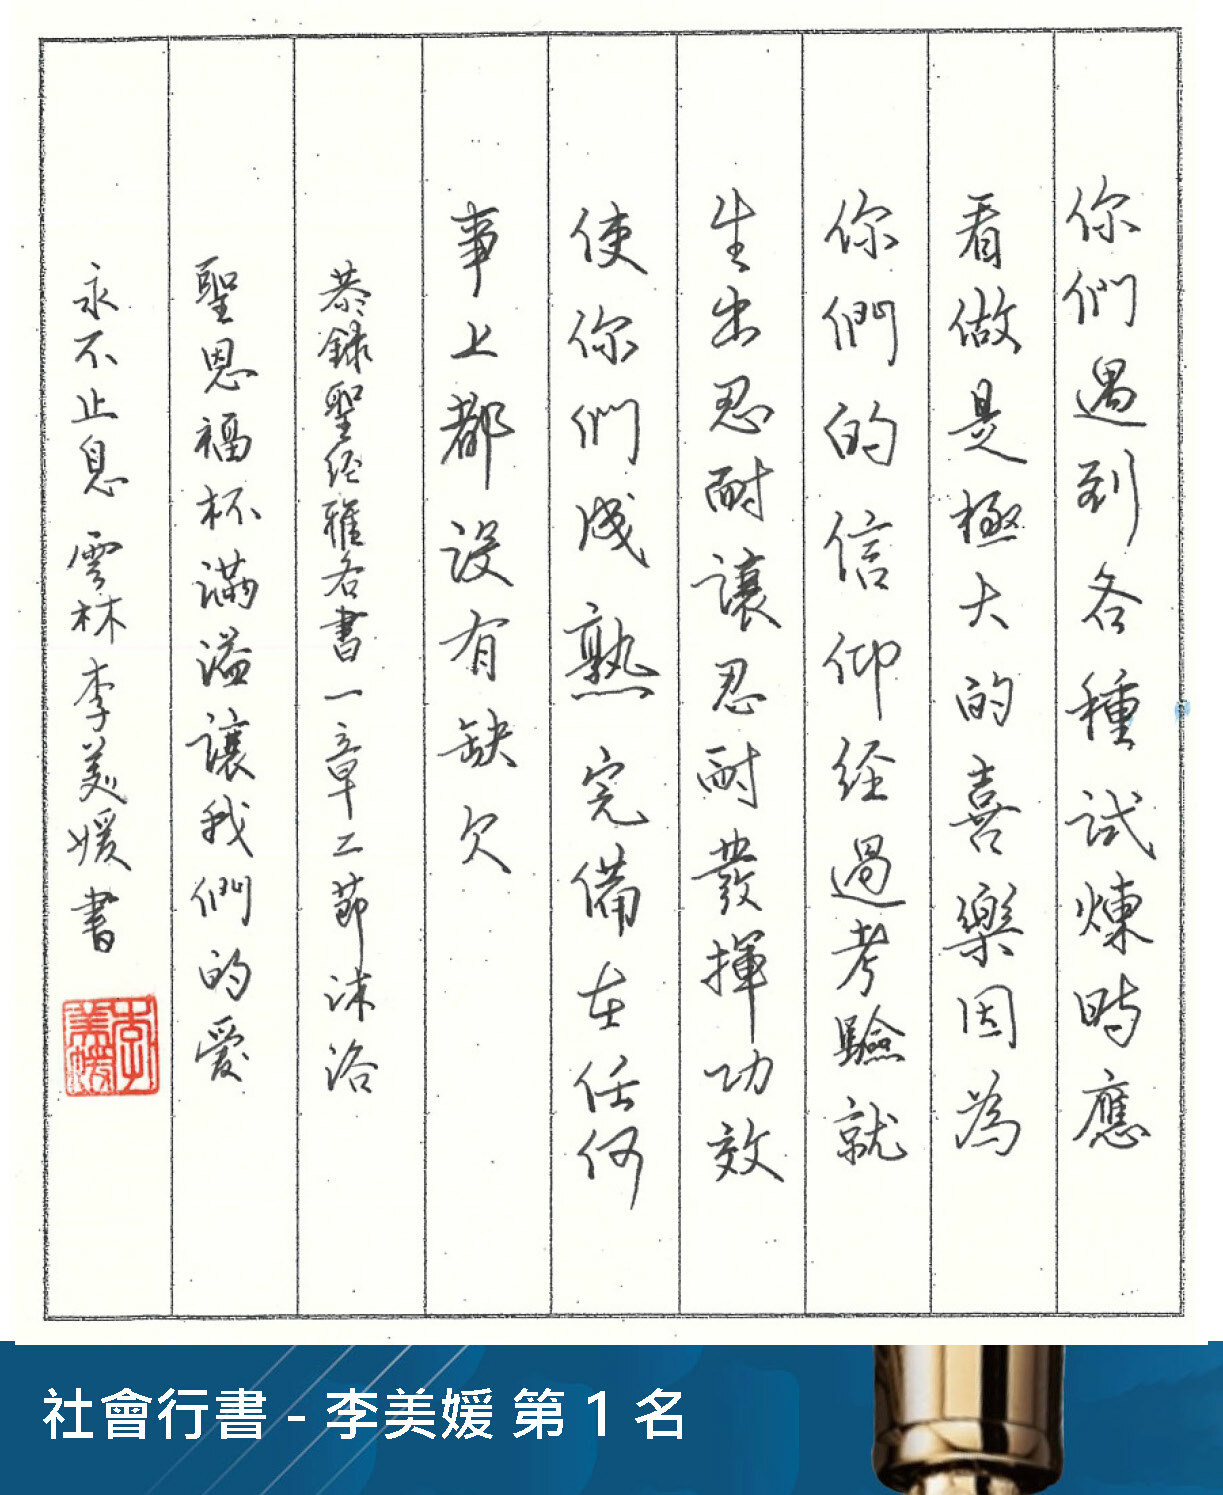 你們遇到各種試煉時應
看做是極大的喜樂因為
你們的信仰經過考驗就
生出忍耐讓忍耐發揮功效
使你們成熟完備在任何
事上都沒有缺欠
恭錄聖經雅各書一章二節沐浴
聖恩福杯滿溢讓我們的愛
永不止息 雲林李美媛書
李美媛
社會行書 - 李美媛 第 1 名